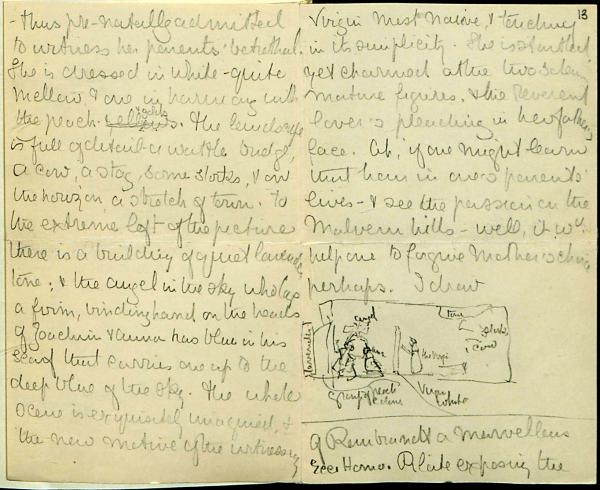 thus pre-natally admitted
to witness her parents' betrothal.
She is dressed in white - quite
mellow, & one in harmony with
the peach. The landscape
is full of detail - a wattle bridge,
a cow, a stag, some storks, & on
the horizon a stretch of town. To
the extreme left of the picture
there is a building of quiet lavender
tone; & the angel in the sky who lays
a firm, binding hand on the heads
of Joachim & Anna has blue in his
scarf that carries one up to the
deep blue of the sky. The whole
scene is exquisitely imagined, &
the new motive of the witnessing
13
Virgin most naive, & touching
in its simplicity. She is startled
yet charmed at the two
mature figures, & the reverent
lover's pleading in her father's
face. Oh, if one might learn
that hour in one's parents'
lives - & see the passion on the
Malvern hills - well, it wd.
help one to forgive Mother's
perhaps. I draw
angel
town
storks
cow
Lavender
the Virgin
Group of peach
Virgin
White
Of Rembrandt a marvellous
Ecce Homo. Pilate exposing the